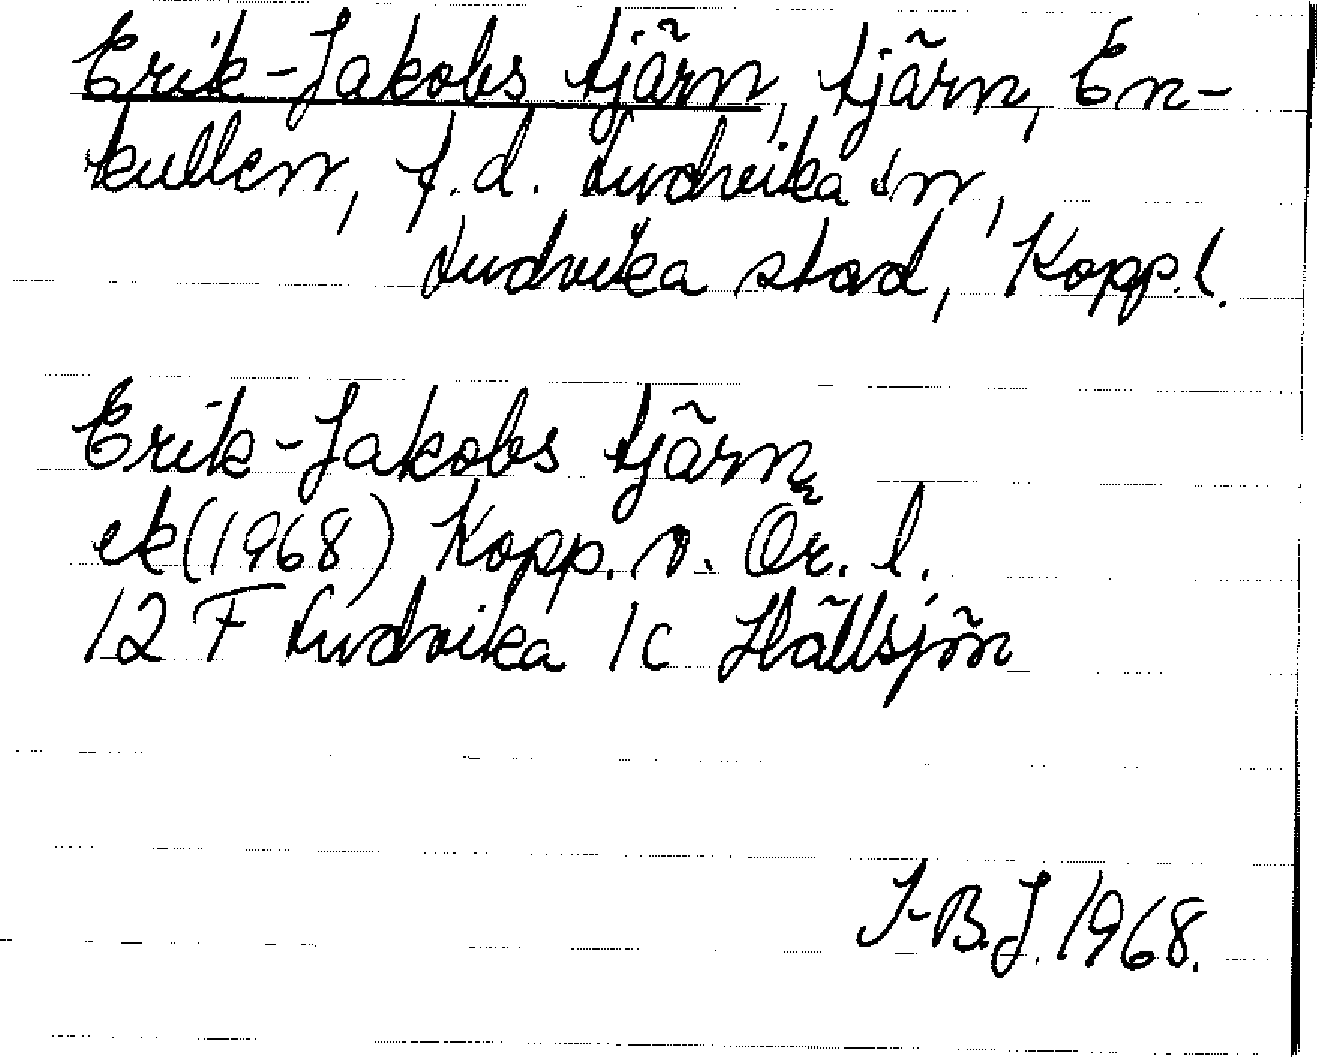 Erik-Jakobs tjärn, tjärn, En-
kullen, f.d. Ludvika sn,
Ludvika stad, Kopp.l.
Erik-Jakobs tjärn
ek (1968) Kopp. o. Ör. l.
12 F Ludvika 1c Hällsjön
I-B.J. 1968.